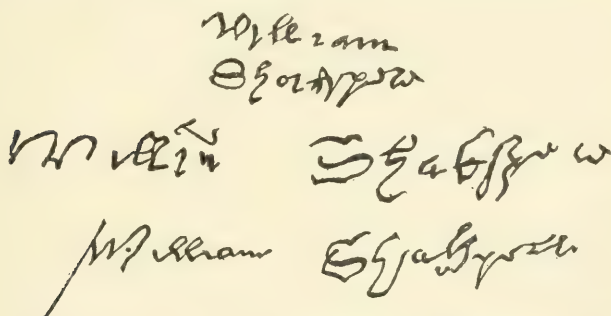 William
Shakspere
Willm Shakspere
William Shakspere